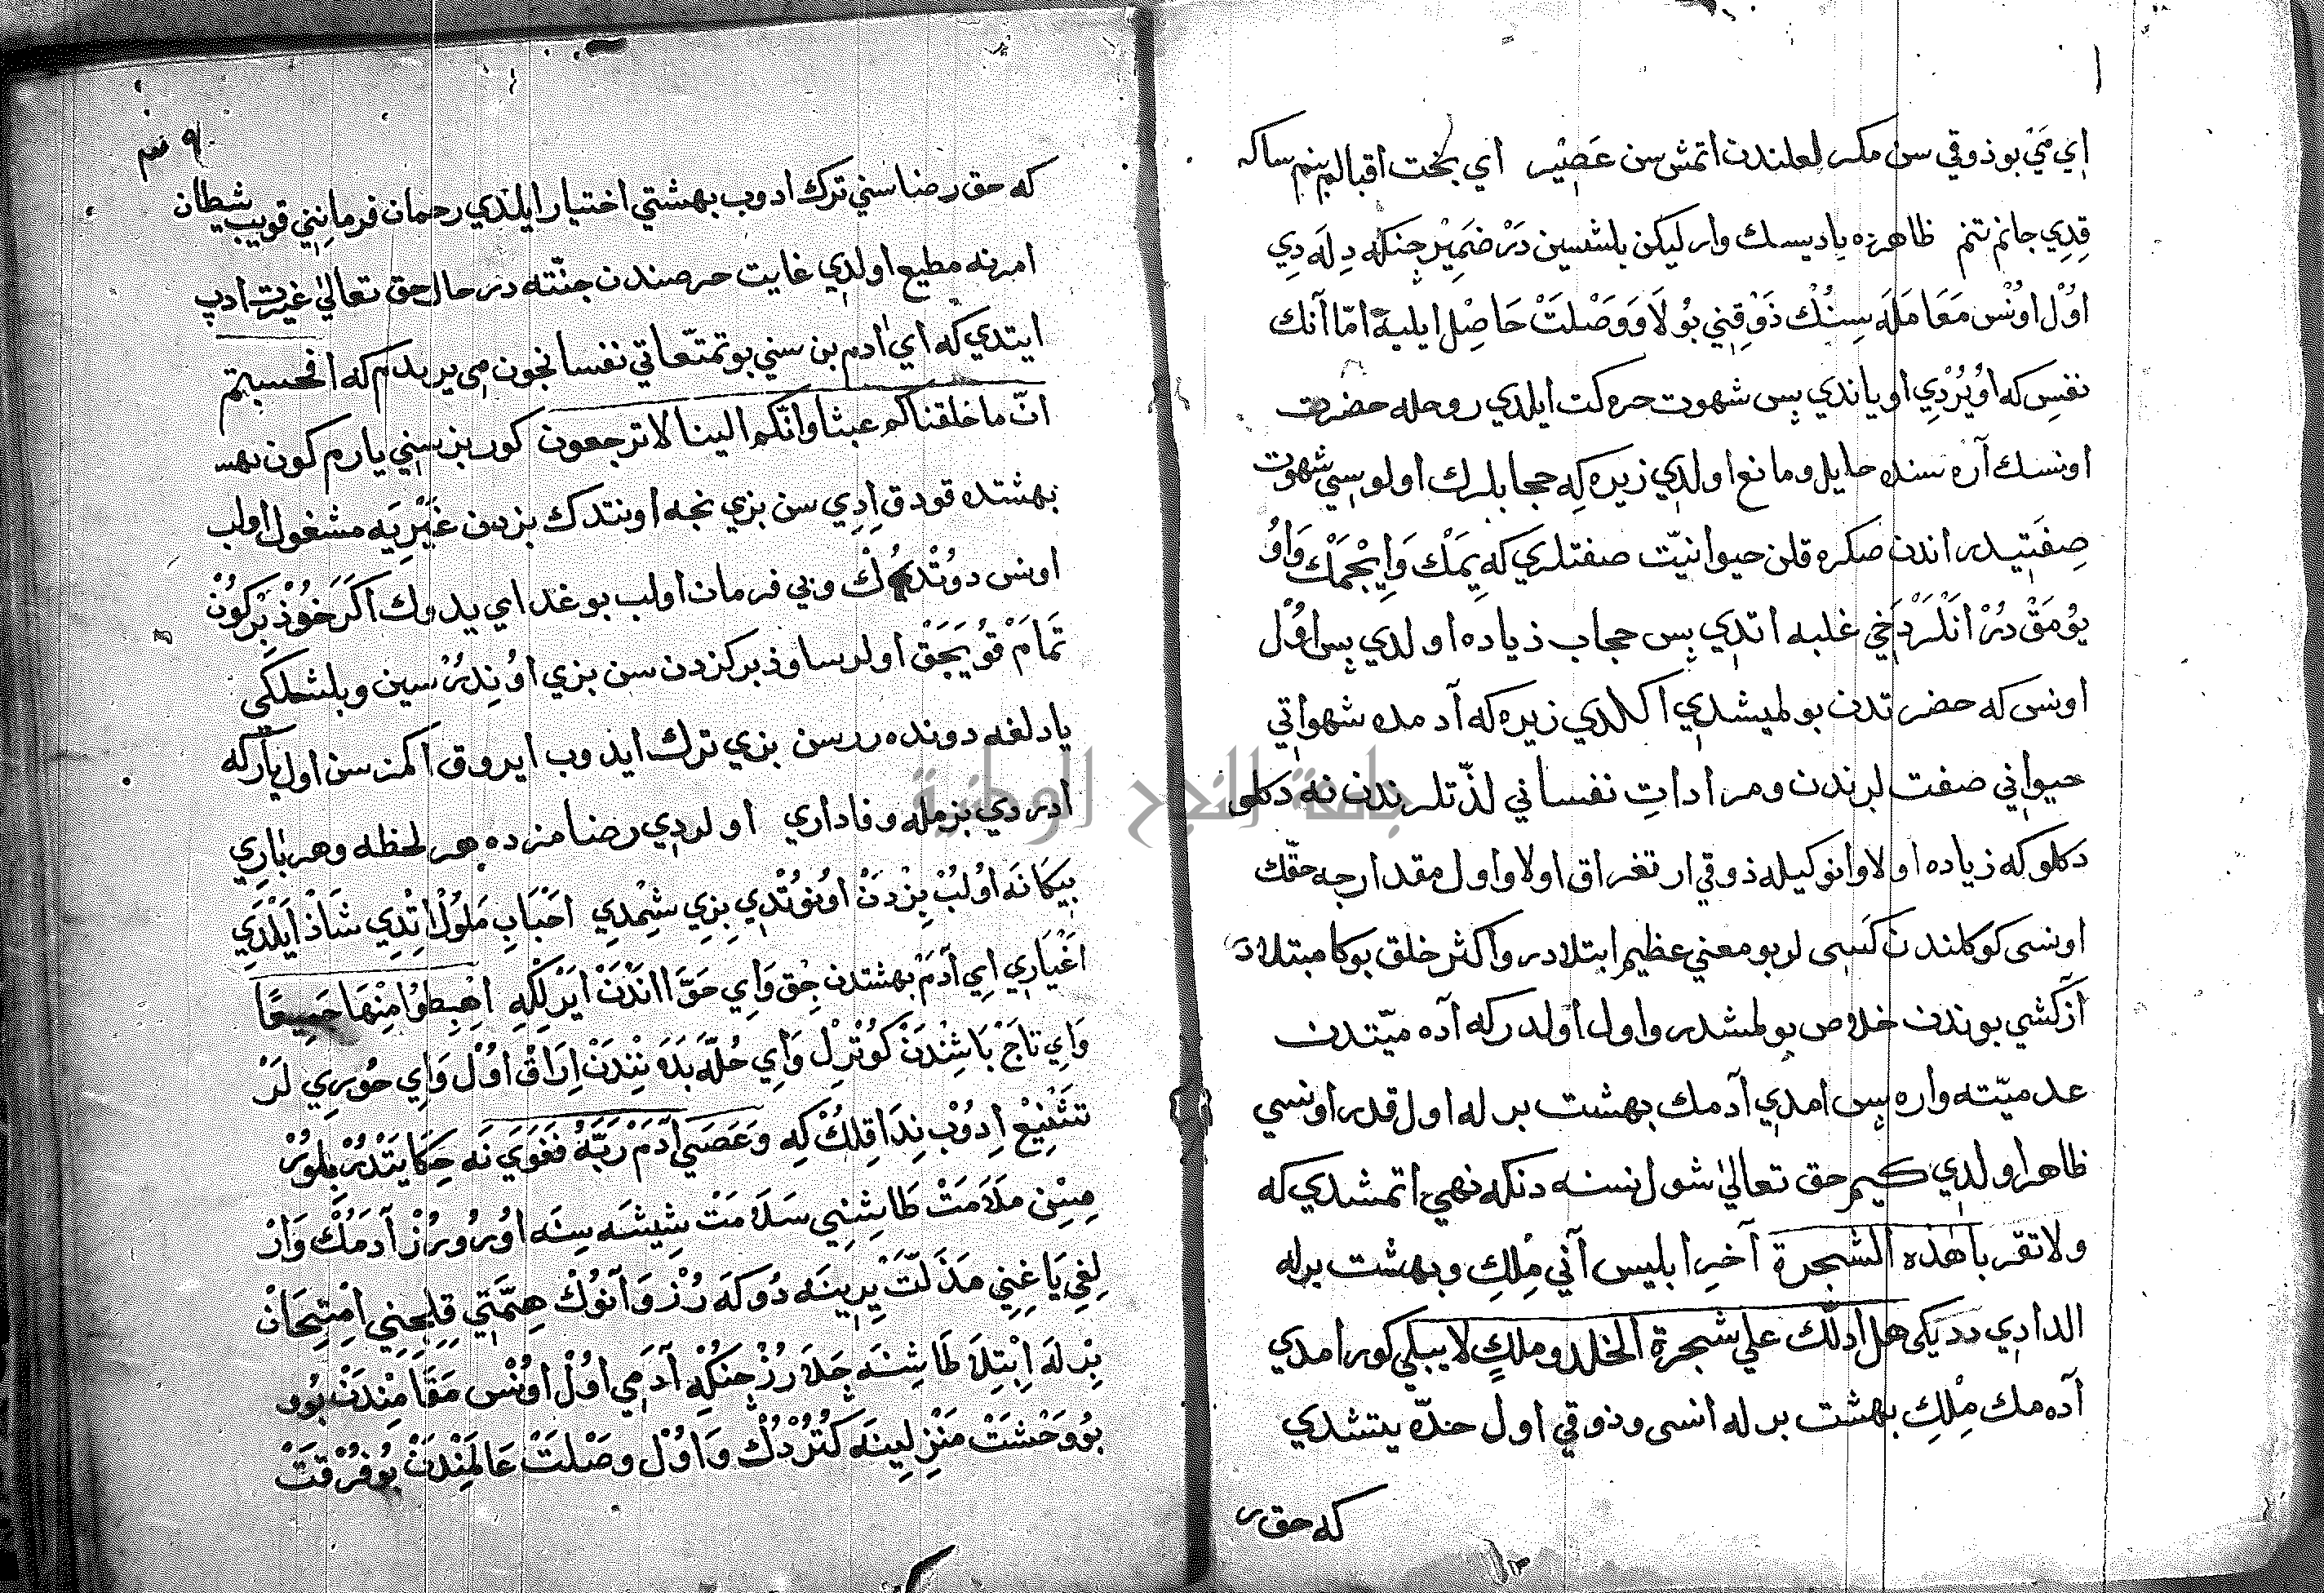 اي مي بو ذوقي سن مكر لعلندن اتمش سن عصير اي بخت اقبالم بنم ساكه
قدي جانم تنم ظاهرده ياديسك وار ليكن بلشسين در ضمير چنكه دله دي
اول اونس مقامله سنك ذوقني بولاو وصلت حاصل ايليه اما آنك
نفس كه اويردي اوياندي پس شهوت حركت ايلدي روحله حضرت
اونسك آره سنده حايل و مانع اولدي زيره كه حجابلرك اولوسي شهوت
صفتيدر اندن صكره قلن حيوانيت صفتلري كه يمك وايچمك واو
يومق در انلردخي غلبه اتدي پس حجاب زياده اولدي پس اول
اونس كه حضرتدن بولميشدي اكلدي زيره كه آدمده شهواتي
حيواني صفت لرندن و مرادات نفساني لذتلرندن نه دكلو
دكلو كه زياده اولا وانوكيله ذوقي ارتغراق اولا واول مقدارجه حقك
اونسى كوكلندن كسيلر بو معني عظيم ابتلادر واكثر خلق بوكا مبتلادر
آز كشي بوندن خلاص بولمشدر واول اولدر كه آدميتدن
عدميته واره پس امدي آدمك بهشت برله اول قدر اونسي
ظاهر اولدي كيم حق تعالى شول نسنه دنكه نهي اتمشدي كه
ولا تقربا هذه الشجرة آخر ابليس آني ملك و بهشت برله
الدادي دديكى هل ادلك علي شجرة الخلد وملك لا يبلي كور امدي
آدمك ملك بهشت برله انسى وذوقي اول حده يتشدي
كه حق
٩
كه حق رضاسني ترك ادوب بهشتي اختيار ايلدي رحمان فرمانني قويب شطان
امرنه مطيع اولدي غايت حرصندن جنته در حال حق تعالى غيرت ادب
ايتدي كه اي ادم بن سني بو تمتعاتي نفسانيچون مي يربدم كه افحسبتم
ان ما خلقناكم عبثا وانكم الينا لا ترجعون كور بز سني يارم كون
بهشتده قودق ادي سن بزي نجه اونتدك بزدن غيريه مشغول اولب
اونس دوتدك وبي فرمان اولب بوغداي يدوك اكر خوذ بر كون
تمام قويجق اولرساوذ بركزدن سن بزي اوندرسين وبلشلكي
يادلغه دوندررسن بزي ترك ايدوب ايروق اكمزسن اول يار كه
ادردي بزمله وفاداري اولردي رضامزده هر لحظه وهر باري
بيكانه اولب بزدن اونوتدي بزي شمدي احباب ملول اتدي شاذ ايلدي
اغياري اي آدم بهشتدن چق واي حوا اندن ايرلكه اهبطوا منها جميعا
واي تاج باشندن كوترل واي حله بدنندن ايراق اول واي حوري لر
تشنيع ادوب ندا قلك كه وعصي آدم ربه فغوي نه حكايتدر بلورز
مسن ملامت طاشني سلامت شيشه سنه اورورز آدمك وار
لغي ياغني مذلت يرينه دوكه رز وآنوك همتي قليجني امتحان
برله ابتلا طاشنه چلارز چنكه آدمي اول اونس مقامندن بو
بو وحشت منزلينه كتردك واول وصلت عالمندن بو فرقت